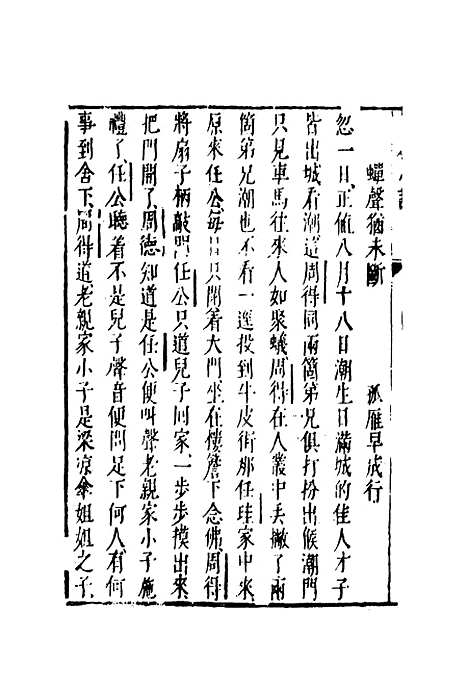 蟬聲猶未斷　孤雁早成行
忽一日正值八月十八日潮生日滿城的佳人才子
皆出城看潮這周得同兩箇弟兄俱打扮出候潮門
只見車馬往來人如聚蟻周得在人叢中丟撇了兩
箇弟兄潮也不看一逕投到牛皮街那任珪家中來
原來任公每日只閉着大門坐在樓簷下念佛周得
將扇子柄敲門任公只道兒子回家一步步摸出來
把門開了周得知道是任公便叫聲老親家小子施
禮了任公聽着不是兒子聲音便問足下何人有何
事到舍下周得道老親家小子是梁凉傘姐姐之子